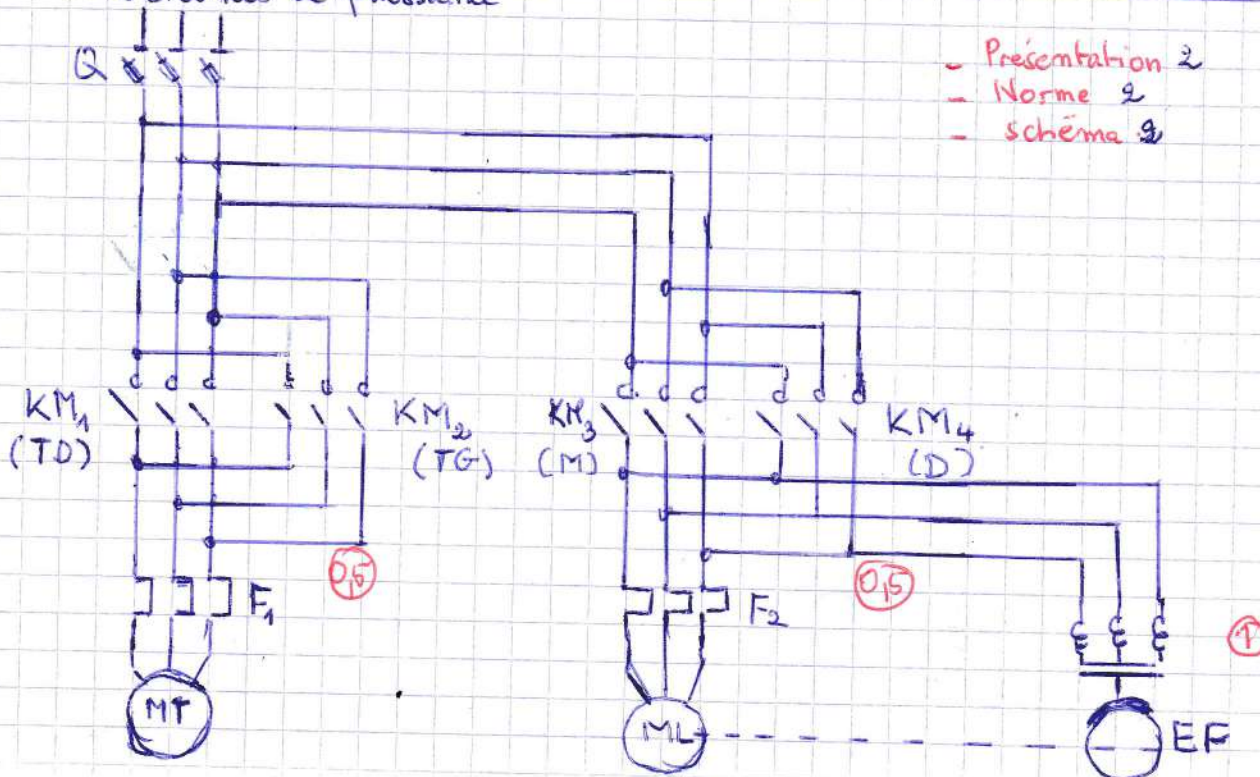 de puissance
- Présentation 2
- Norme 2
- schéma 2
Q
KM1
(TD)
KM2
(TG)
KM3
(M)
KM4
(D)
0,5
0,5
1
F1
F2
MT
ML
EF